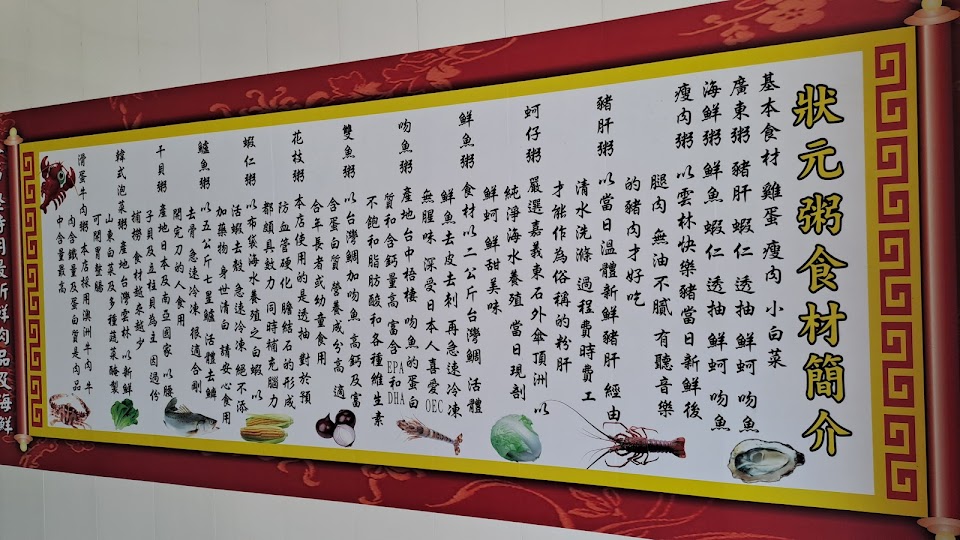 狀元粥食材簡介
基本食材 雞蛋 瘦肉 小白菜
廣東粥 豬肝 蝦仁 透抽 鮮蚵 吻魚
海鮮粥 鮮魚 蝦仁 透抽 鮮蚵 吻魚
瘦肉粥 以雲林快樂豬當日新鮮後
腿肉 無油不膩 有聽音樂
的豬肉才好吃
豬肝粥 以當日溫體新鮮豬肝 經由
清水洗滌 過程費時費工
才能作為俗稱的粉肝
蚵仔粥 嚴選嘉義東石外傘頂洲 以
純淨海水養殖 當日現剖
鮮蚵 鮮甜美味
鮮魚粥 食材以二公斤台灣鯛 活體
鮮魚去皮去刺 再急速冷凍
無腥味 深受日本人喜愛
吻魚粥 產地台中梧棲 吻魚的蛋白
質和含鈣量高 富含EPA和DHA
不飽和脂肪酸和各種維生素
雙魚粥 以台灣鯛加吻魚 高鈣及富
含蛋白質 營養成分高 適
合年長者或幼童食用
花枝粥 本店使用的是透抽 對於預
防血管硬化 膽結石的形成
都頗具效力 同時補充腦力
蝦仁粥 以布袋海水養殖之白蝦 以
活蝦去殼 急速冷凍 絕不添
加藥物 身世清白 請安心食用
鱸魚粥 以五公斤七星鱸 活體去鱗
去骨 急速冷凍 很適合剛
開完刀的人食用
干貝粥 產地日本及南亞國家 以腰
子貝及立柱貝為主 因過份
捕撈 食材越來越少
韓式泡菜粥 產地台灣雲林 以新鮮
山東白菜及多種蔬菜醃製
可開胃整腸
滑蛋牛肉粥 本店採用澳洲牛肉 牛
肉含鐵量及蛋白質是肉品
中含量最高